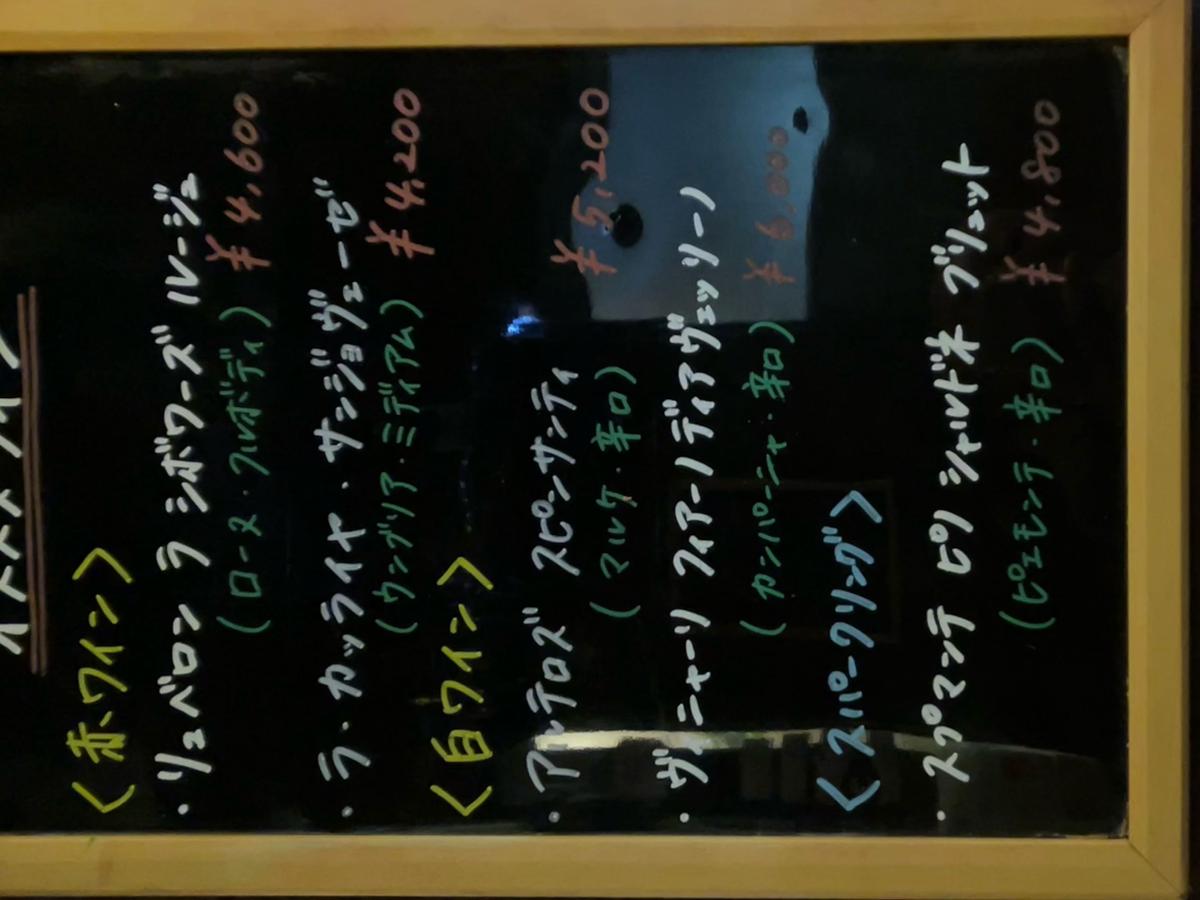 〈赤ワイン〉
・リュベロン ラ シボワーズ ルージュ
(ローヌ・フルボディ) ¥4,600
・ラ・カッライヤ・サンジョヴェーゼ
(ウンブリア・ミディアム) ¥4,200
〈白ワイン〉
・アルテロズ スピンサンティ
(マルケ・辛口) ¥5,200
・ヴィニャーリ フィアーノディアヴェッリーノ
(カンパーニャ・辛口) ¥6,000
〈スパークリング〉
・スプマンテ ピソ シャルドネ ブリュット
(ピエモンテ・辛口) ¥4,800